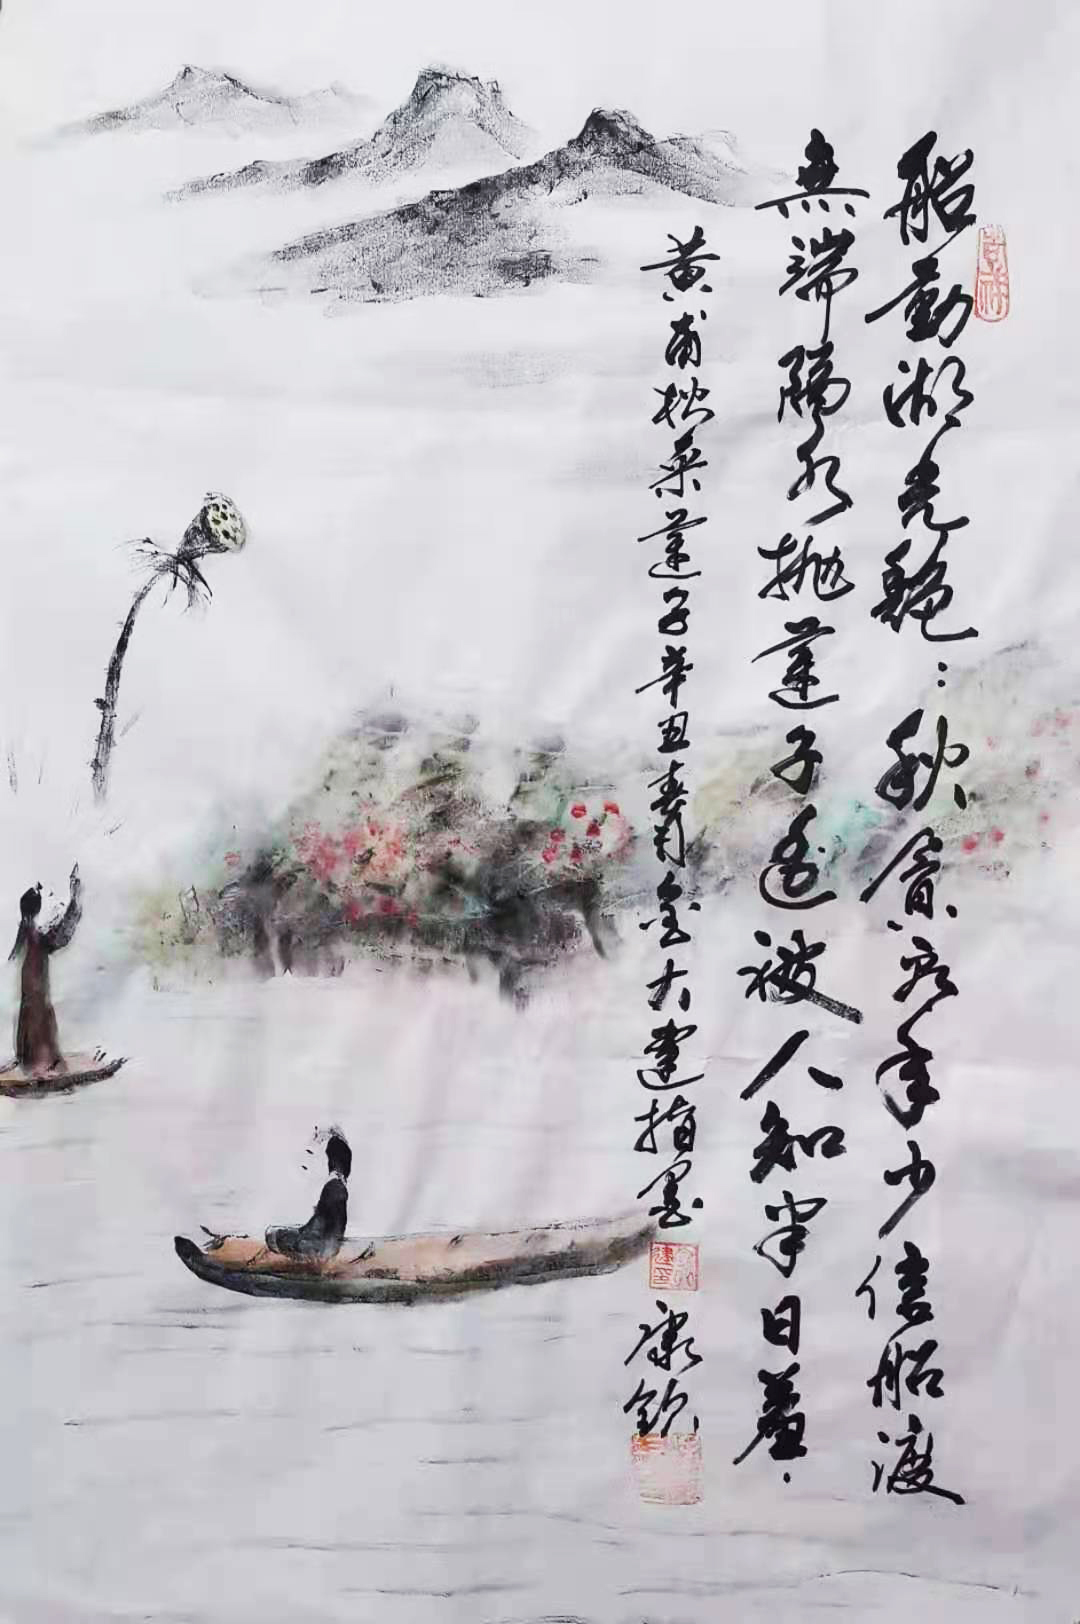 船動湖光艷：秋貪看年少信船渡
無端隔水抛蓮子遥被人知半日羞．
黄甫松采蓮子辛丑春月金大建指墨
康钦
吉祥